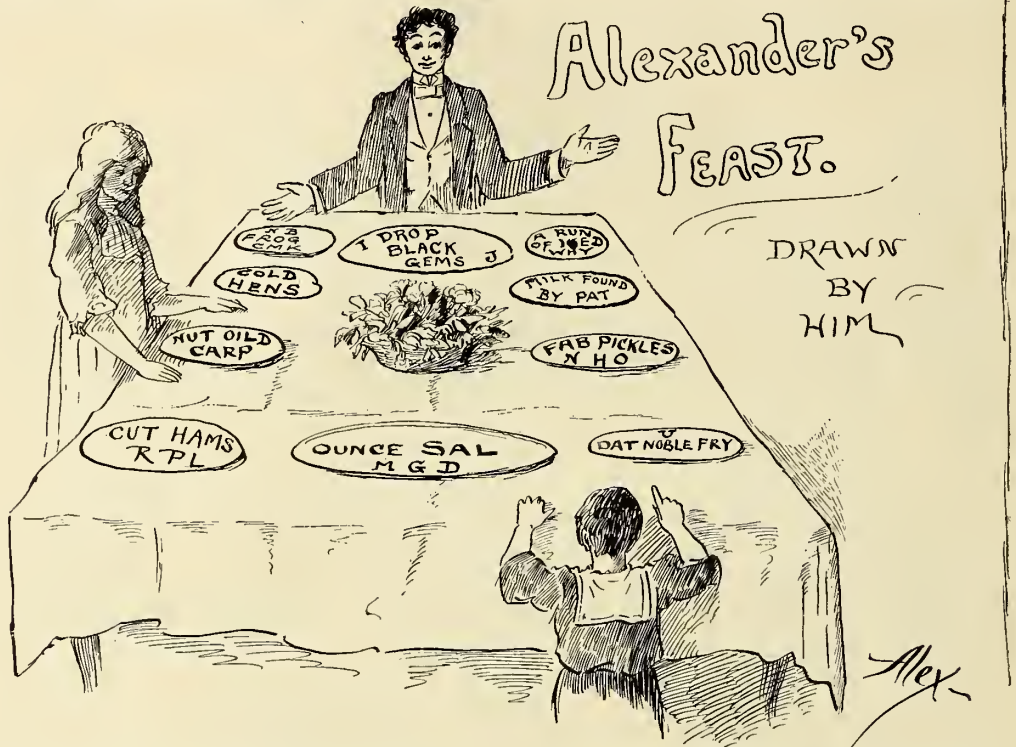 Alexander's
FEAST.
DRAWN
BY
HIM
N B
FROG
CMK
I DROP
BLACK
GEMS J
A RUN
OF
WHY
COLD
HENS
MILK FOUND
BY PAT
NUT OILD
CARP
FAB PICKLES
N H O
CUT HAMS
R P L
OUNCE SAL
M G D
U
DAT NOBLE FRY
Alex